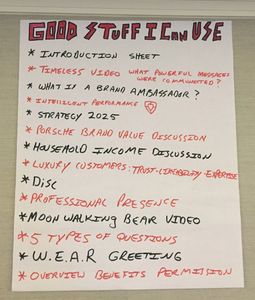 GOOD STUFF I CAN USE
* INTRODUCTION SHEET
* TIMELESS VIDEO WHAT POWERFUL MESSAGES
WERE COMMUNICATED?
* WHAT IS A BRAND AMBASSADOR?
* INTELLIGENT PERFORMANCE
* STRATEGY 2025
* PORSCHE BRAND VALUE DISCUSSION
* HOUSEHOLD INCOME DISCUSSION
* LUXURY CUSTOMERS: TRUST-LIKEABILITY-EXPERTISE
* DISC
* PROFESSIONAL PRESENCE
* MOON WALKING BEAR VIDEO
* 5 TYPES OF QUESTIONS
* W.E.A.R GREETING
* OVERVIEW BENEFITS PERMISSION